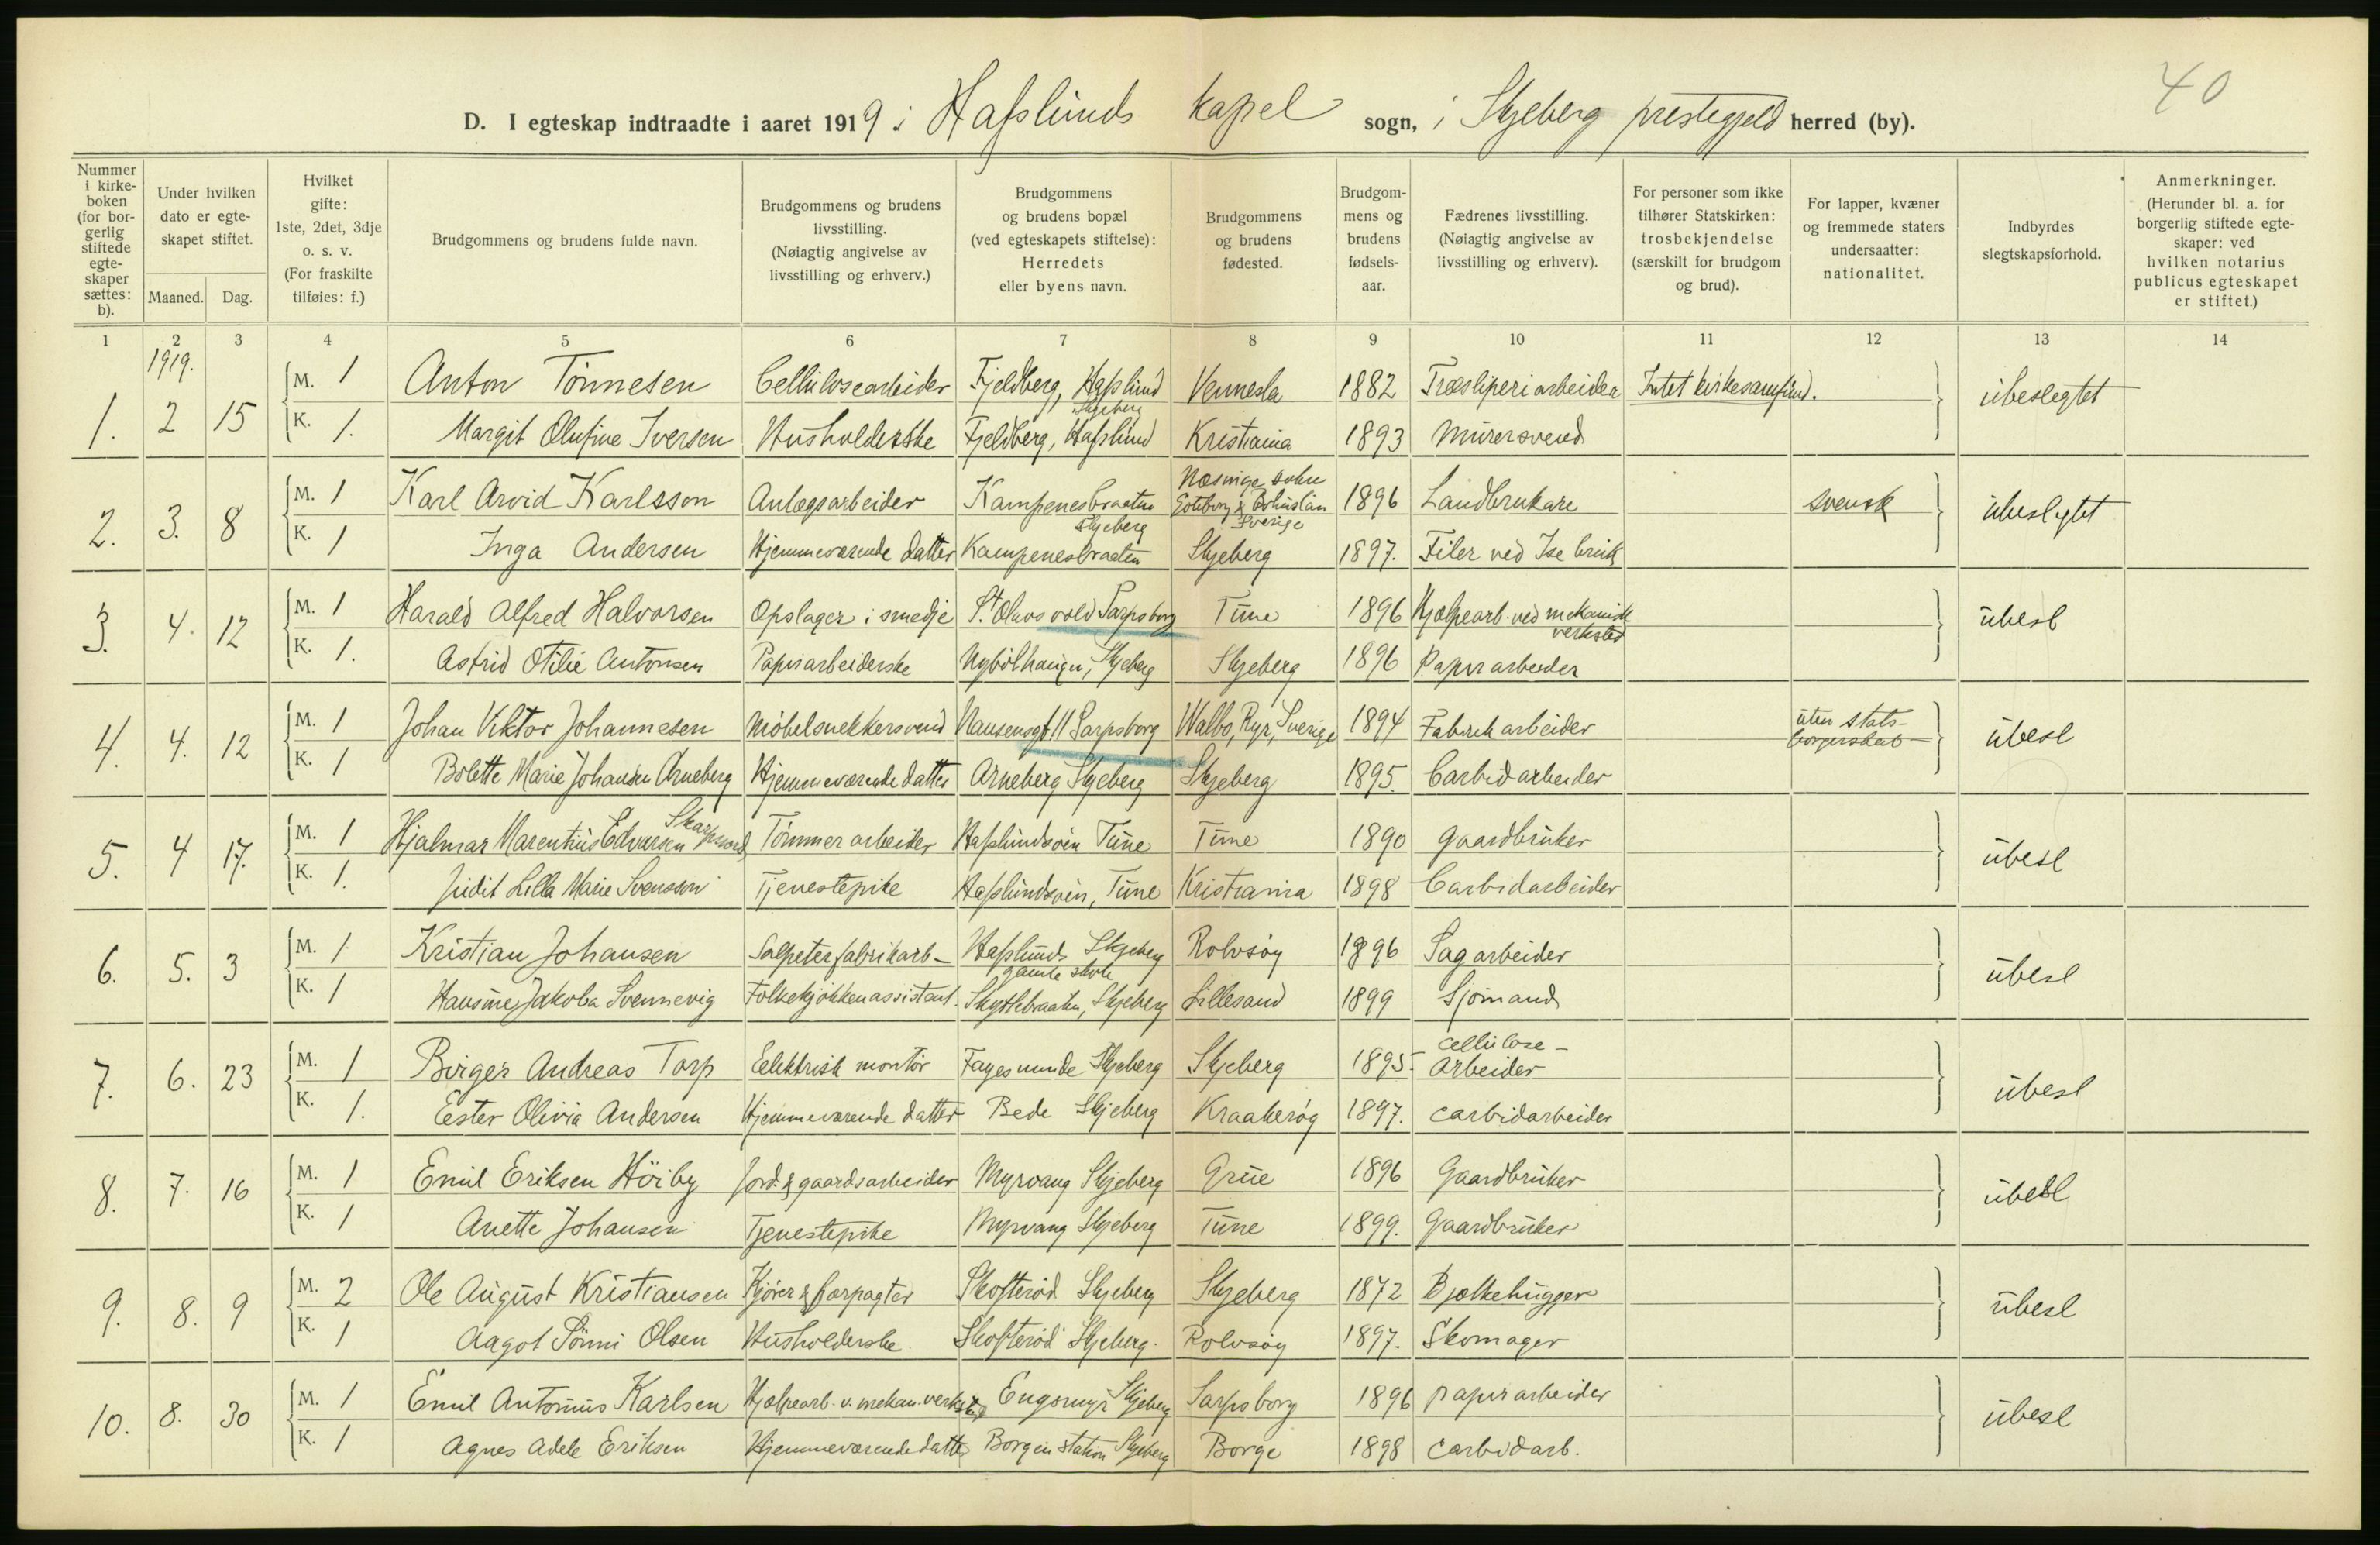 40
D. I egteskap indtraadte i aaret 1919 i Hafslunds kapel sogn, i Skjeberg prestegjeld herred (by).
Nummer i kirkeboken (for borgerlig stiftede egteskaper sættes: b).
Under hvilken dato er egteskapet stiftet.
Maaned. Dag.
Hvilket gifte: 1ste, 2det, 3dje o. s. v. (For fraskilte tilføies: f.)
Brudgommens og brudens fulde navn.
Brudgommens og brudens livsstilling. (Nøiagtig angivelse av livsstilling og erhverv.)
Brudgommens og brudens bopæl (ved egteskapets stiftelse): Herredets eller byens navn.
Brudgommens og brudens fødested.
Brudgommens og brudens fødselsaar.
Fædrenes livsstilling. (Nøiagtig angivelse av livsstilling og erhverv).
For personer som ikke tilhører Statskirken: trosbekjendelse (særskilt for brudgom og brud).
For lapper, kvæner og fremmede staters undersaatter: nationalitet.
Indbyrdes slegtskapsforhold.
Anmerkninger. (Herunder bl. a. for borgerlig stiftede egteskaper: ved hvilken notarius publicus egteskapet er stiftet.)
1 2 3 4 5 6 7 8 9 10 11 12 13 14
1919.
1. 2 15 M. 1 Anton Tönnesen Cellulosearbeider Fjeldberg, Hafslund Skjeberg Vennesla 1882 Træsliperiarbeider Intet kirkesamfund. ubeslegtet
K. 1. Margit Olufine Iversen Husholderske Fjeldberg, Hafslund Kristiania 1893 Murersvend
2. 3. 8 M. 1 Karl Arvid Karlsson Anlægsarbeider Kampenesbraaten Skjeberg Næsinge sokn Göteborg & Bohuslän Sverige 1896 Landbrukare svensk ubeslegtet
K. 1 Inga Andersen Hjemmeværende datter Kampenesbraaten Skjeberg 1897. Filer ved Ise bruk
3. 4. 12 M. 1 Harald Alfred Halvorsen Opslager i smedje St. Olavs vold Sarpsborg Tune 1896 Hjælpearb. ved mekanisk verksted ubesl
K. 1. Astrid Otilie Antonsen Papirarbeiderske Nybölhaugen, Skjeberg Skjeberg 1896 Papirarbeider
4. 4. 12 M. 1 Johan Viktor Johannesen Möbelsnekkersvend Nansensgt 11 Sarpsborg Walbo, Ryr, Sverige 1894 Fabrikarbeider uten statsborgerskab ubesl
K. 1 Bolette Marie Johansen Arneberg Hjemmeværende datter Arneberg Skjeberg Skjeberg 1895. Carbidarbeider
5. 4 17. M. 1 Hjalmar Marentius Edvarsen Skarpnord Tömmerarbeider Hafslundsöen Tune Tune 1890 Gaardbruker ubesl
K. 1. Judit Lilla Marie Svensson Tjenestepike Hafslundsöen, Tune Kristiania 1898 Carbidarbeider
6. 5. 3 M. 1 Kristian Johansen Salpeterfabrikarb- Hafslunds gamle skole Skjeberg Rolvsöy 1896 Sagarbeider ubesl
K. 1 Hansine Jakoba Svennevig Folkekjökkenassistent. Skyttebraaten, Skjeberg Lillesand 1899 Sjömand
7. 6. 23 M. 1 Birger Andreas Torp Eelektrisk montör Fagesmunde Skjeberg Skjeberg 1895. Cellulose-Arbeider ubesl
K. 1. Eester Olivia Andersen Hjemmeværende datter Bede Skjeberg Kraakeröy 1897. Carbidarbeider
8. 7. 16 M. 1 Emil Eriksen Höiby Jord & gaardsarbeider Myrvang Skjeberg Grue 1896 Gaardbruker ubesl
K. 1 Anette Johansen Tjenestepike Myrvang Skjeberg Tune 1899. Gaardbruker
9. 8. 9 M. 2 Ole August Kristiansen Kjörer & forpagter Skofteröd Skjeberg Skjeberg 1872 Bjelkehugger ubesl
K. 1 Aagot Sönni Olsen Husholderske Skofteröd Skjeberg. Rolvsöy 1897. Skomager
10. 8. 30 M. 1 Emil Antonius Karlsen Hjælpearb. v. mekan. verksted Engsmyr Skjeberg Sarpsborg 1896 papirarbeider ubesl
K. 1 Agnes Adele Eriksen Hjemmeværende datter Borgen station Skjeberg Borge 1898 Carbidarb.